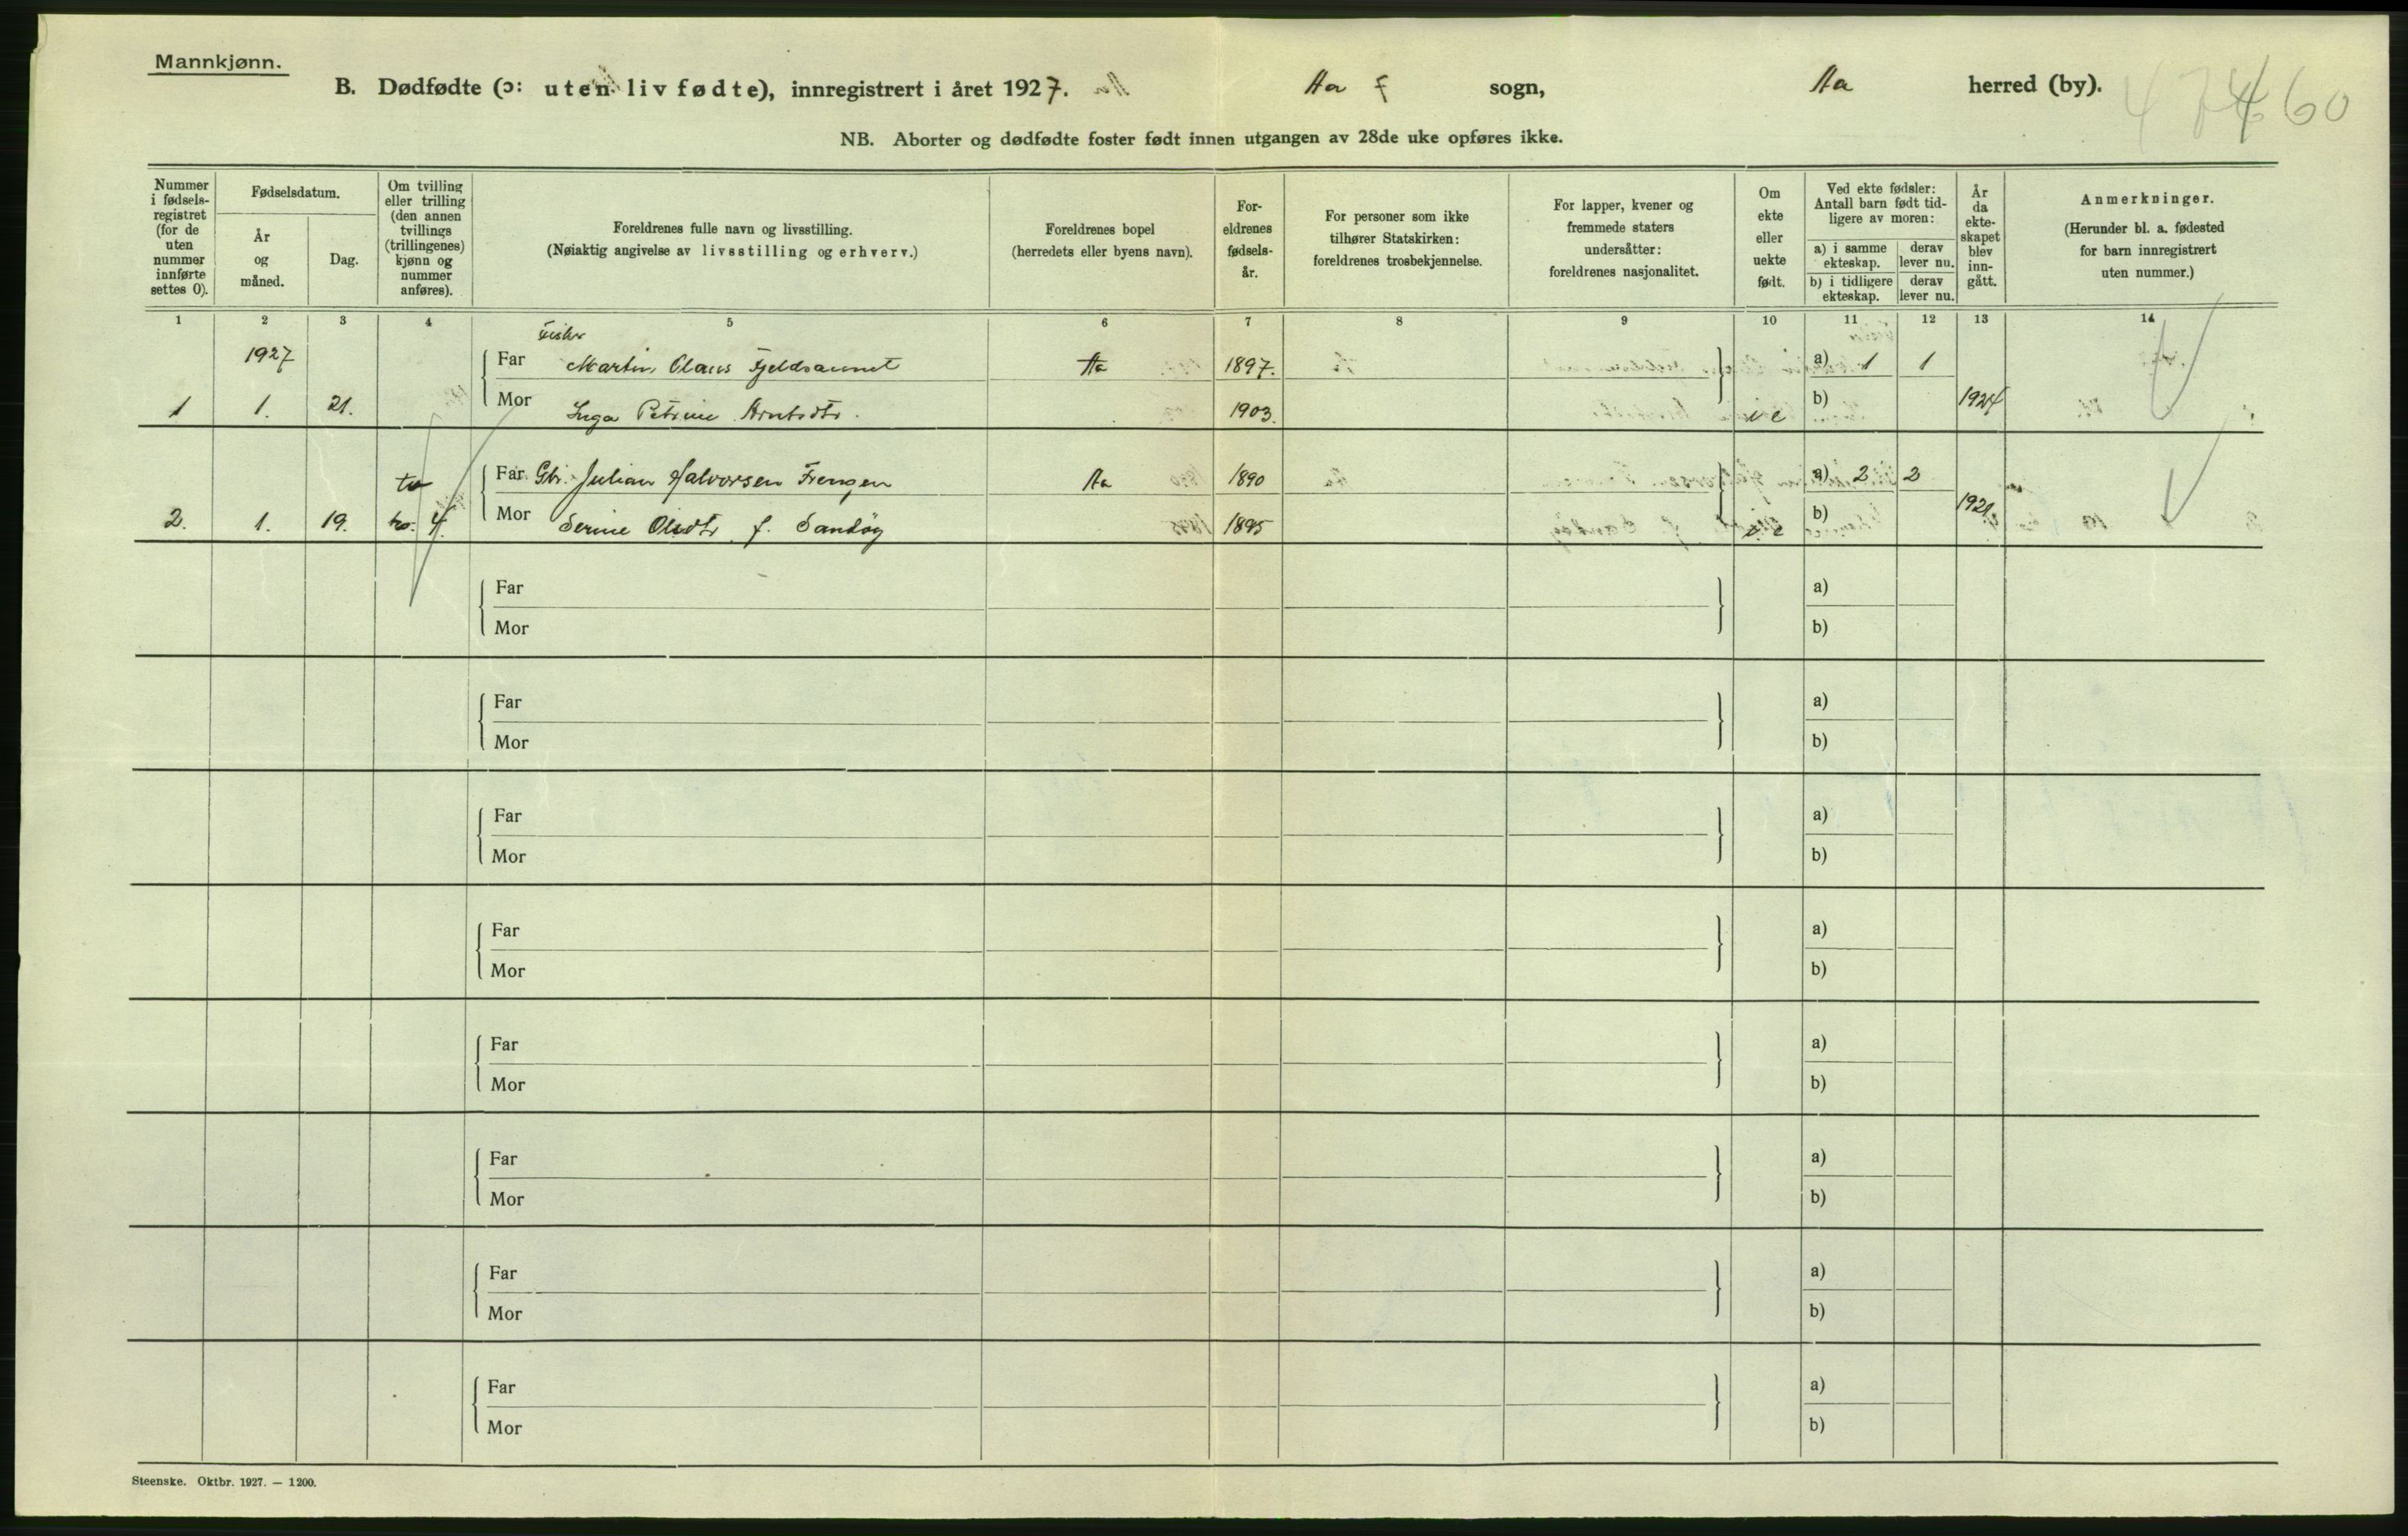 Mannkjønn.
B. Dødfødte (ɔ: uten liv fødte), innregistrert i året 1927. Aa sogn, Aa herred (by).
460
NB. Aborter og dødfødte foster født innen utgangen av 28de uke opføres ikke.
Nummer i fødsels-registret (for de uten nummer innførte settes 0).
Fødselsdatum.
År og måned.
Dag.
Om tvilling eller trilling (den annen tvillings (trillingenes) kjønn og nummer anføres).
Foreldrenes fulle navn og livsstilling.
(Nøiaktig angivelse av livsstilling og erhverv.)
Foreldrenes bopel
(herredets eller byens navn).
For-eldrenes fødsels-år.
For personer som ikke tilhører Statskirken: foreldrenes trosbekjennelse.
For lapper, kvener og fremmede staters undersåtter: foreldrenes nasjonalitet.
Om ekte eller uekte født.
Ved ekte fødsler: Antall barn født tid-ligere av moren:
a) i samme ekteskap.
derav lever nu.
b) i tidligere ekteskap.
derav lever nu.
År da ekte-skapet blev inn-gått.
Anmerkninger.
(Herunder bl. a. fødested for barn innregistrert uten nummer.)
1 2 3 4 5 6 7 8 9 10 11 12 13 14
Fisker
1927 Far Martin Olaus Fjeldaunet Aa 1897. a) 1 1
1 1. 21. Mor Inga Petrine Arntsdtr. 1903. e b) 1924
tv Far Gbr. Julian Halvorsen Frengen Aa 1890 a) 2 2
2. 1. 19. 4. Mor Serine Olsdtr f. Sandøy 1895 e b) 1921
Far a)
Mor b)
Far a)
Mor b)
Far a)
Mor b)
Far a)
Mor b)
Far a)
Mor b)
Far a)
Mor b)
Far a)
Mor b)
Far a)
Mor b)
Steenske. Oktbr. 1927. — 1200.